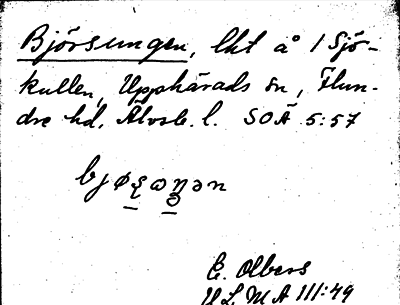 Björsungen, lht å 1 Sjö-
kullen, Upphärads sn, Flun-
dre hd, Älvsb. l. SOÄ 5:57
E. Olbers
ULMA 111:49